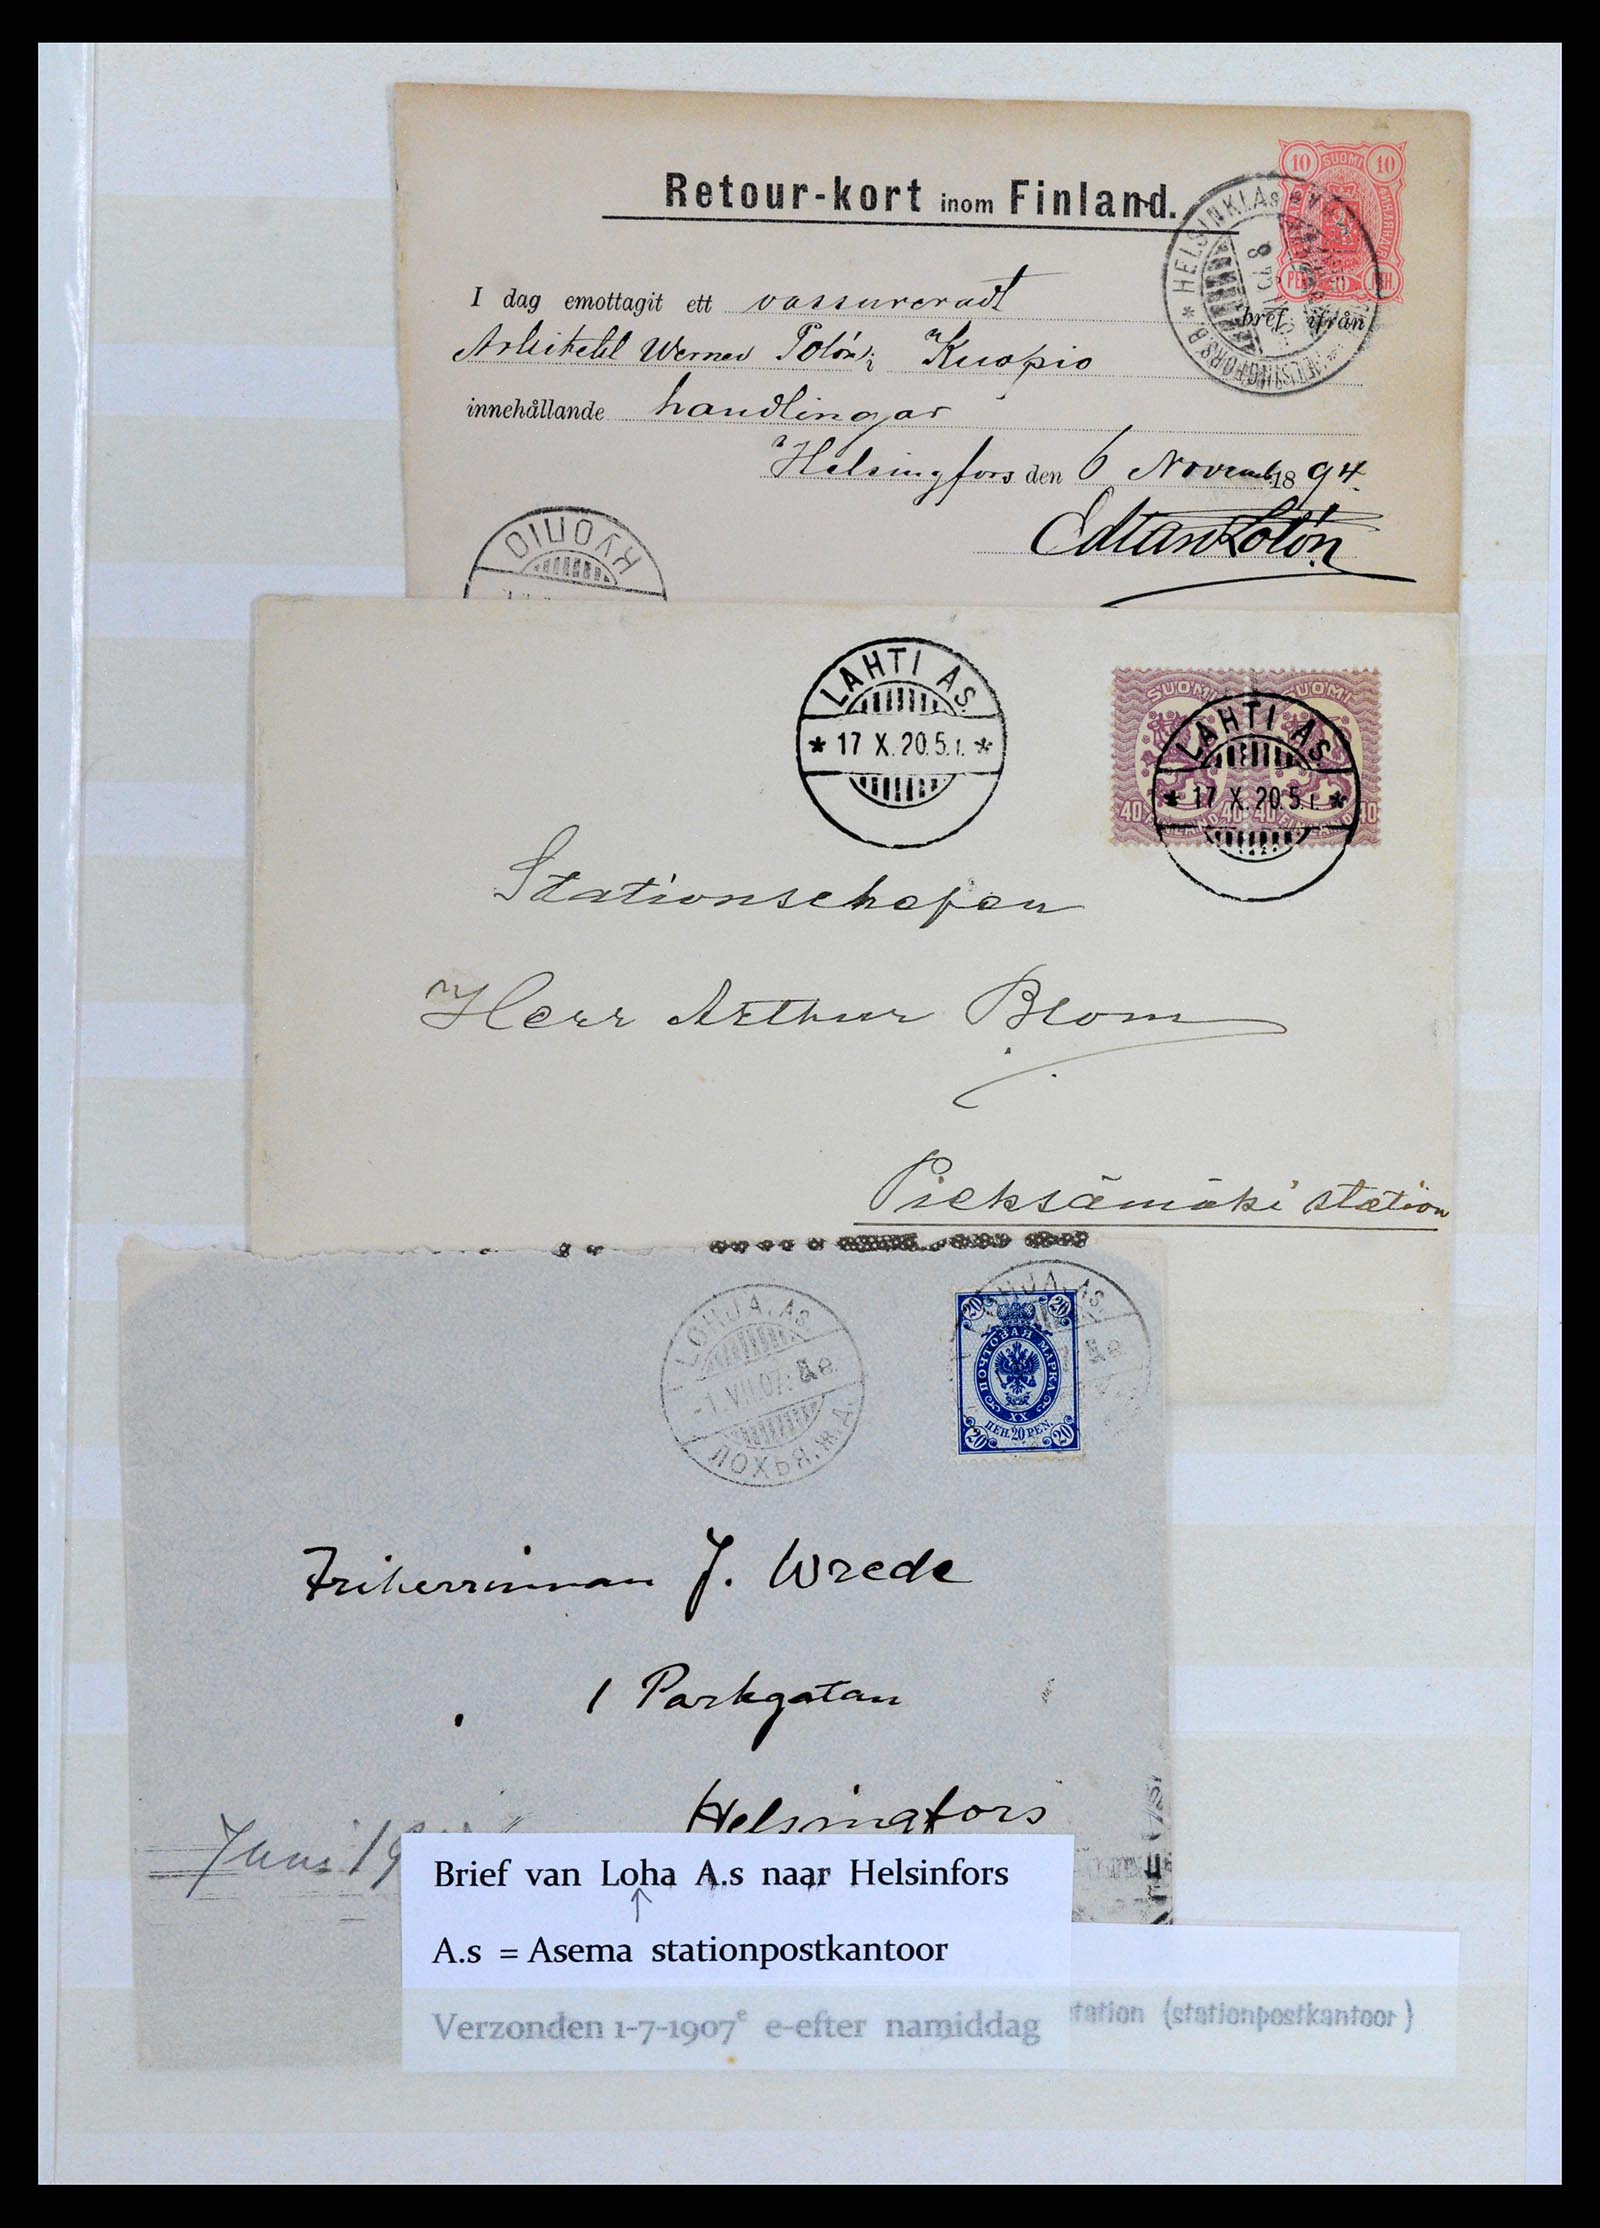 10 SUOMI 10
Retour-kort inom Finland.
HELSINKI.As
HELSINGFORS B
I dag emottagit ett vassureradt
bref ifrån
Arkitekt Werner Polón i Kuopio
innehållande handlingar
Helsingfors den 6 Novemb. 1894.
KYOПIO
LAHTI AS.
* 17 X. 20. 5 i. *
SUOMI SUOMI
LAHTI AS.
* 17 X. 20. 5 i. *
40 FINLAND 40 40 FINLAND 40
Stationschefen
Herr Arthur Blom
Pieksämäki station
LOHJA. As.
-1.VII.07: 8 e.
ЛОХЬЯ.Ж.Д.
LOHJA. As.
8 e.
20 20
ПОЧТОВАЯ МАРКА
XX
20 ПЕН. 20 PEN. 20
Friherrinnan J. Wrede
1 Parkgatan
Helsingfors
Juni 19
Brief van Loha A.s naar Helsinfors
A.s = Asema stationpostkantoor
Verzonden 1-7-1907 e e-efter namiddag
tation (stationpostkantoor)